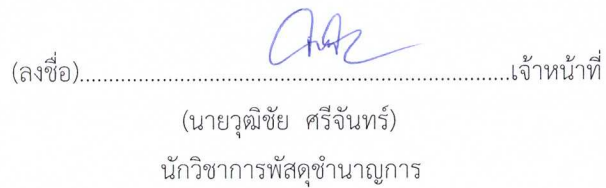 (ลงชื่อ)......................................................................เจ้าหน้าที่
(นายวุฒิชัย ศรีจันทร์)
นักวิชาการพัสดุชำนาญการ